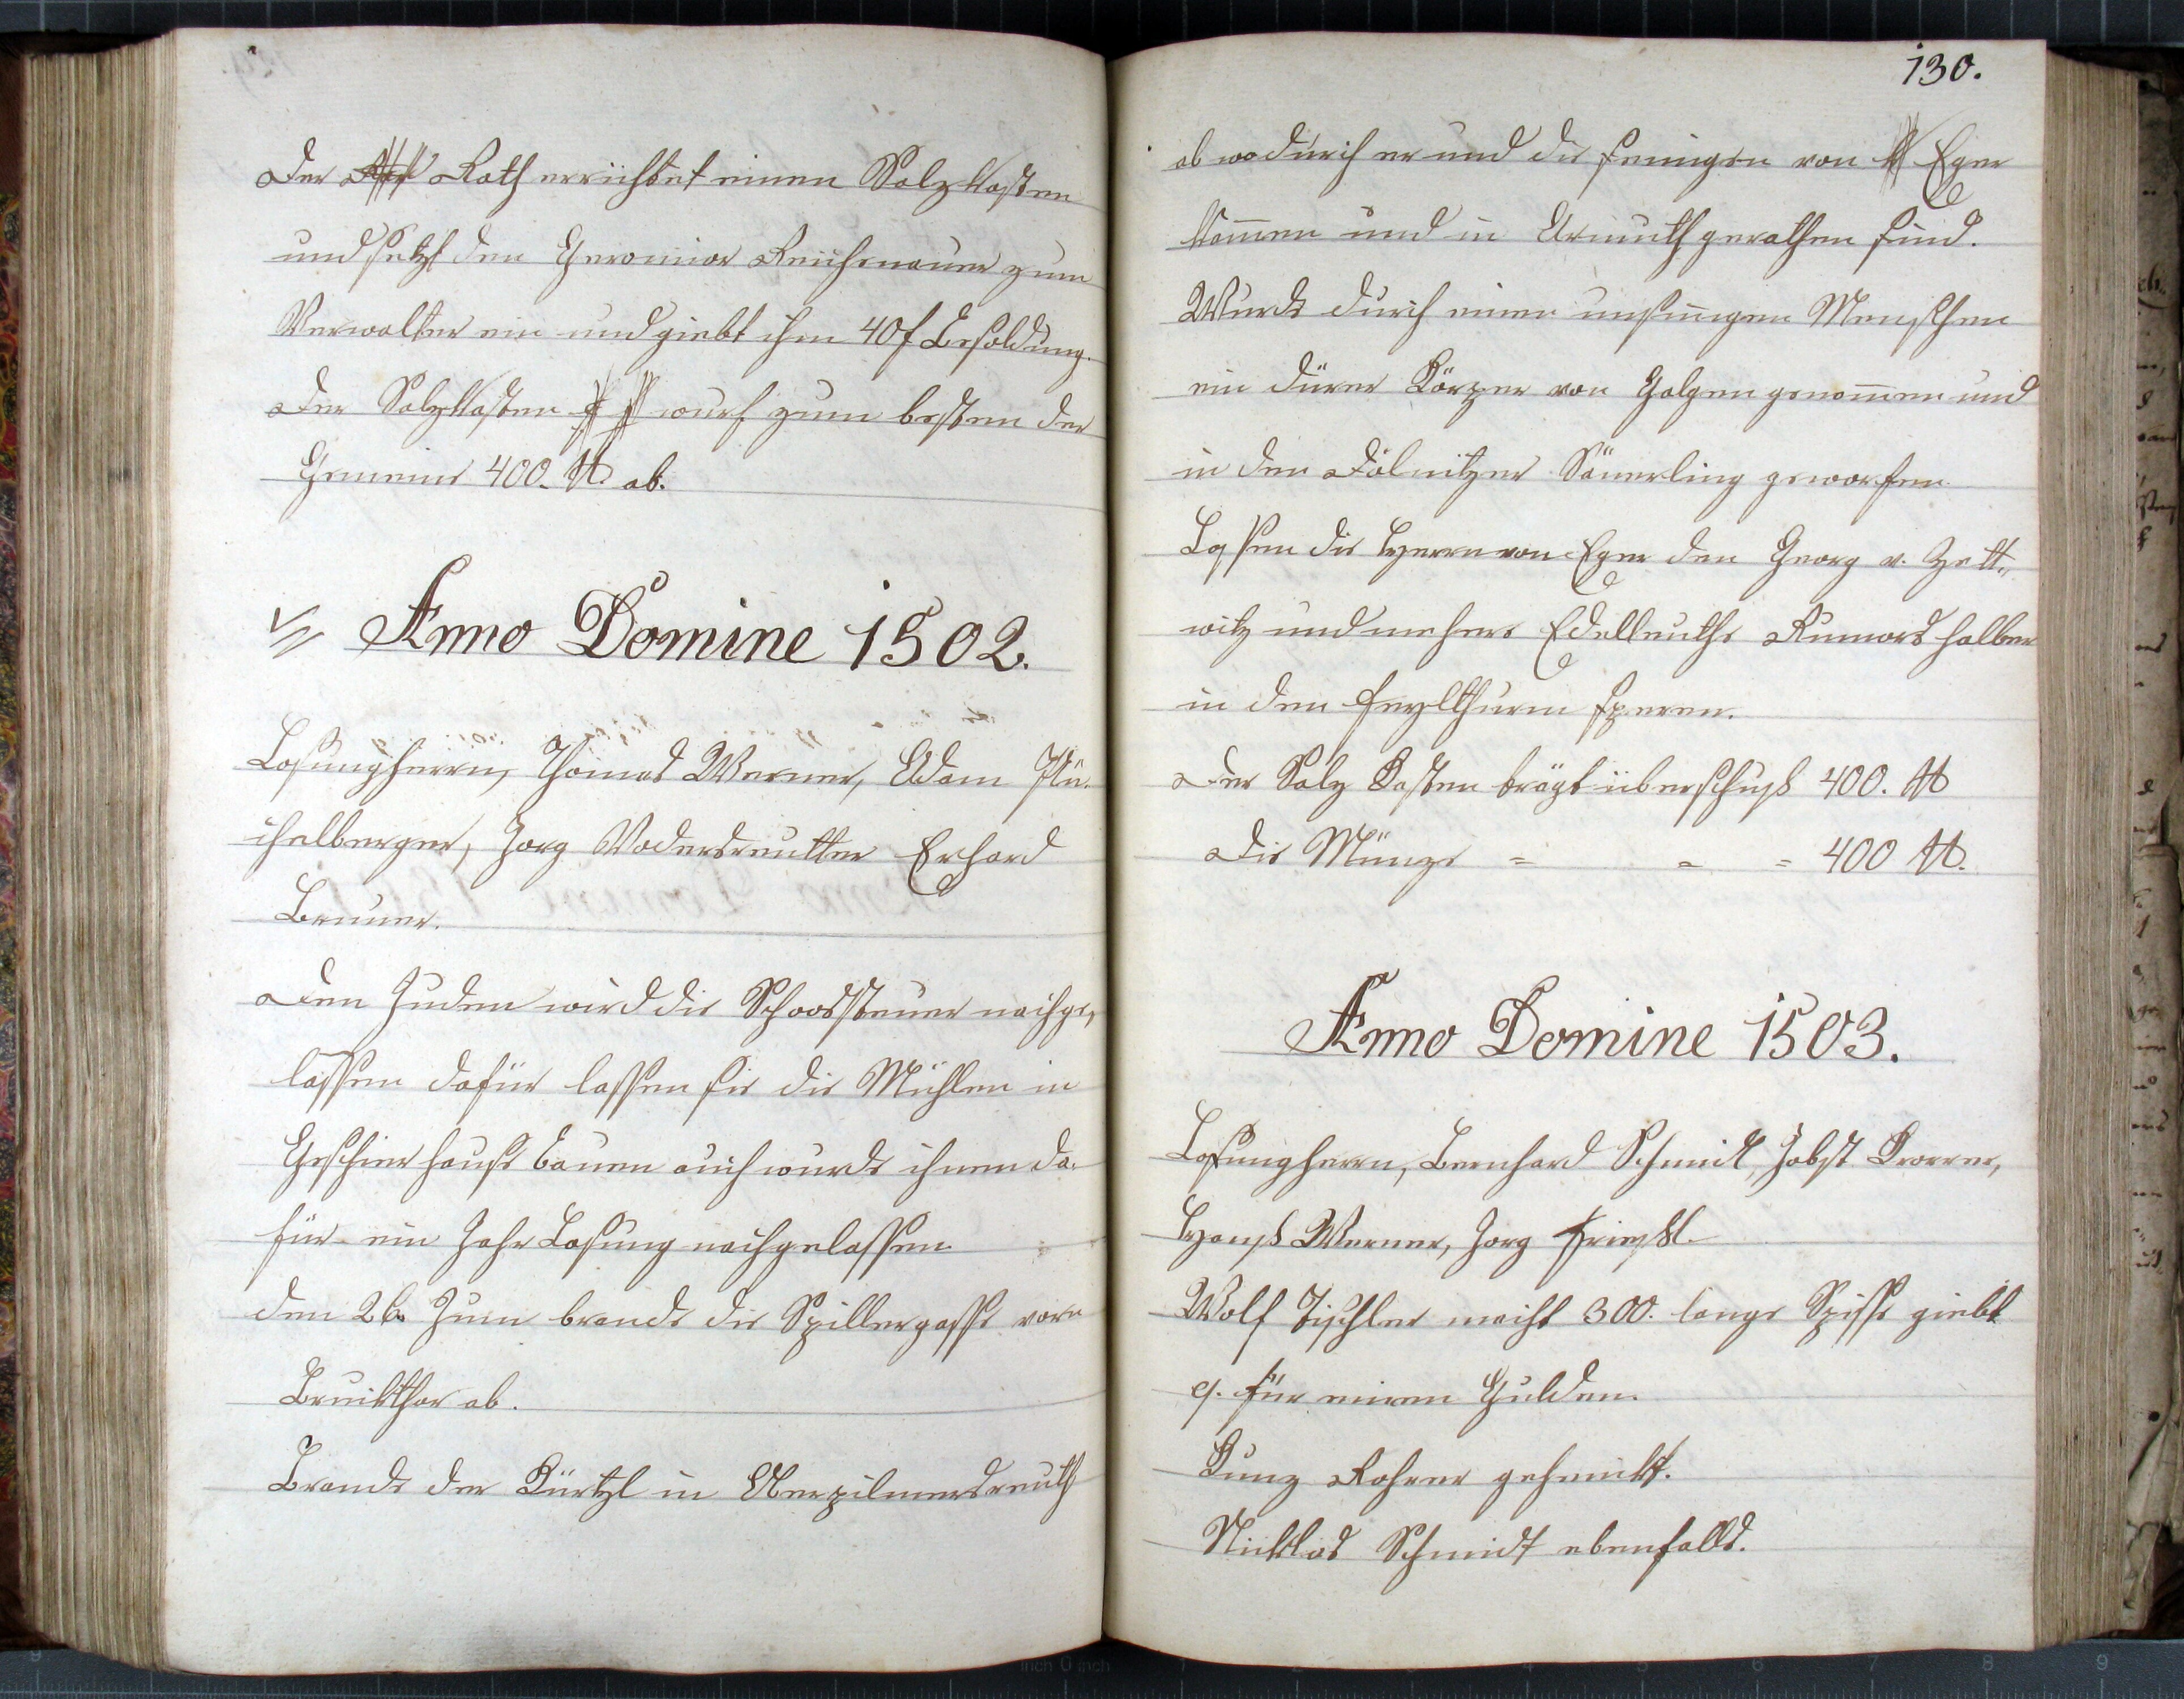 Der Rath errichtet einen Salzkasten
und setzt den Gronimor Reichenauer zum
Verwalter ein und giebt ihm 40 f Besoldung.
Der Salzkasten wurf zum besten der
Gemeine 400. ₶ ab.
Anno Domine 1502.
Losungherrn, Thomas Werner, Adam Pü-
chelberger, Jorg Vodersreutter Erhard
Bruner.
Den Juden wird die Schossteuer nachge„
lassen dafür lassen sie die Mühlen in
Geschier hause bauen auch wurde ihnen da-
für ein Jahr Losung nachgelassen
den 26. Juni brande die Spillergasse vorn
Bruckthor ab.
Brande der Kürtzl in Oberpilmersreuth
130.
ab wodurch er und die seinigen von Eger
kom̄en und in Armuth gerathen sind.
Wurde durch einen unsinigen Menschen
ein dürrer Körper von Galgen genom̄en und
in den Dölnitzer Säuerling geworfen
Lassen die Herrn von Eger den Georg v. Zett„
witz und mehere Edelleuthe Rumors halber
in den Feylthurm speren.
Der Salz Kasten trägt überschuß 400. ₶
Die Münze = = = 400 ₶.
Anno Domine 1503.
Losungherrn, Bernhard Schmidl, Jobst Krorer,
Hanß Werner, Jorg Friesl.
Wolf Tischler macht 300. lange Spisse giebt
9. für einen Gulden.
Kunz Rohrer gehenckt.
Nicklas Schmidt ebenfalls.